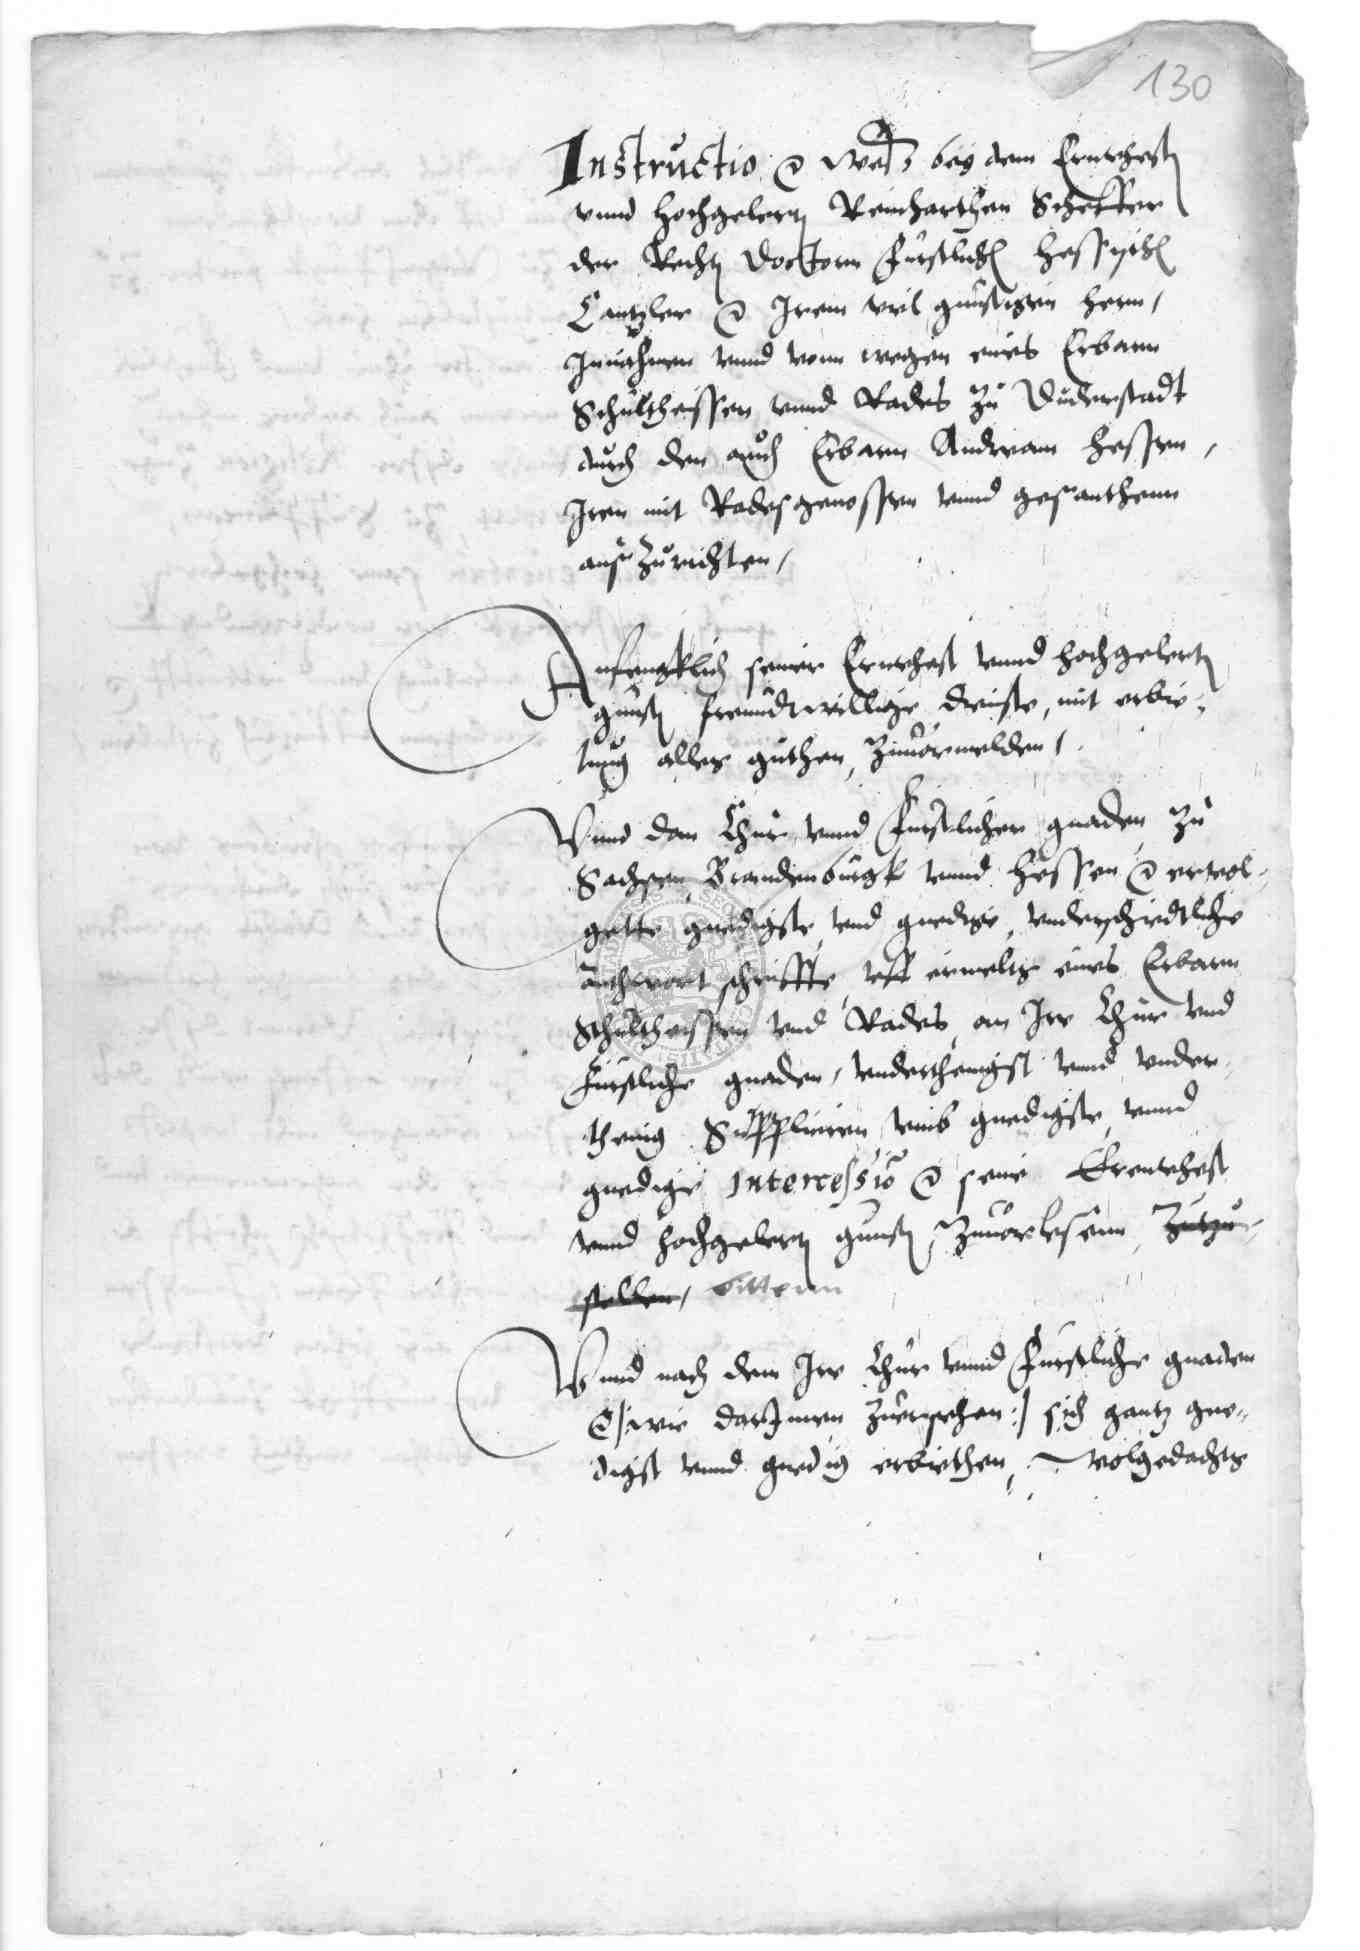 130
Instructio ꝛc Weß bey dem Ernvhestn
vnnd Hochgelertn Reinharthen Scheffer
der Rechtn Doctorn Fürstlichn Hessischn
Cantzler ꝛc Irem viel günstigen Herrn,
Innahmen vnnd vonn wegen eines Erbarn
Schultheissen vnnd Rades zu Duderstadt
durch den auch Erbarn Andream Hessen,
Iren mit Radesgenossen vnnd gesanthenn
auszurichten,
Anfengklich seiner Ernvhest vnnd Hochgelertn
gunstn freundtwillige Dinste, mit erbie-
tung alles guthen, Zuuormelden,
Vnnd dan Chur vnnd Fürstlicher gnaden, zu
Sachsen, Brandenburgk vnnd Hessen ꝛc ervol-
gette gnedigste vnd gnedige, vnderschiedtliche
anthwort schriffte, vff ermelts eines Erbarn
Schultheissen vnd Rades, an Ire Chur vnd
Fürstliche gnaden, vnderthenigst vnnd vnder-
thenig Suppliciren vmb gnedigste, vnnd
gnedige Intercessio ꝛc seine Erenvhest
vnnd Hochgelertn gunstn, Zuuorlesenn, zuzu-
stellen, bittenn
Vnnd nach dem Ire Chur vnnd Fürstliche gnaden
ꝛc /:wie darinnen zuersehen:/ sich gantz gne-
digst vnnd gnedig erbiethen, wolgedachts